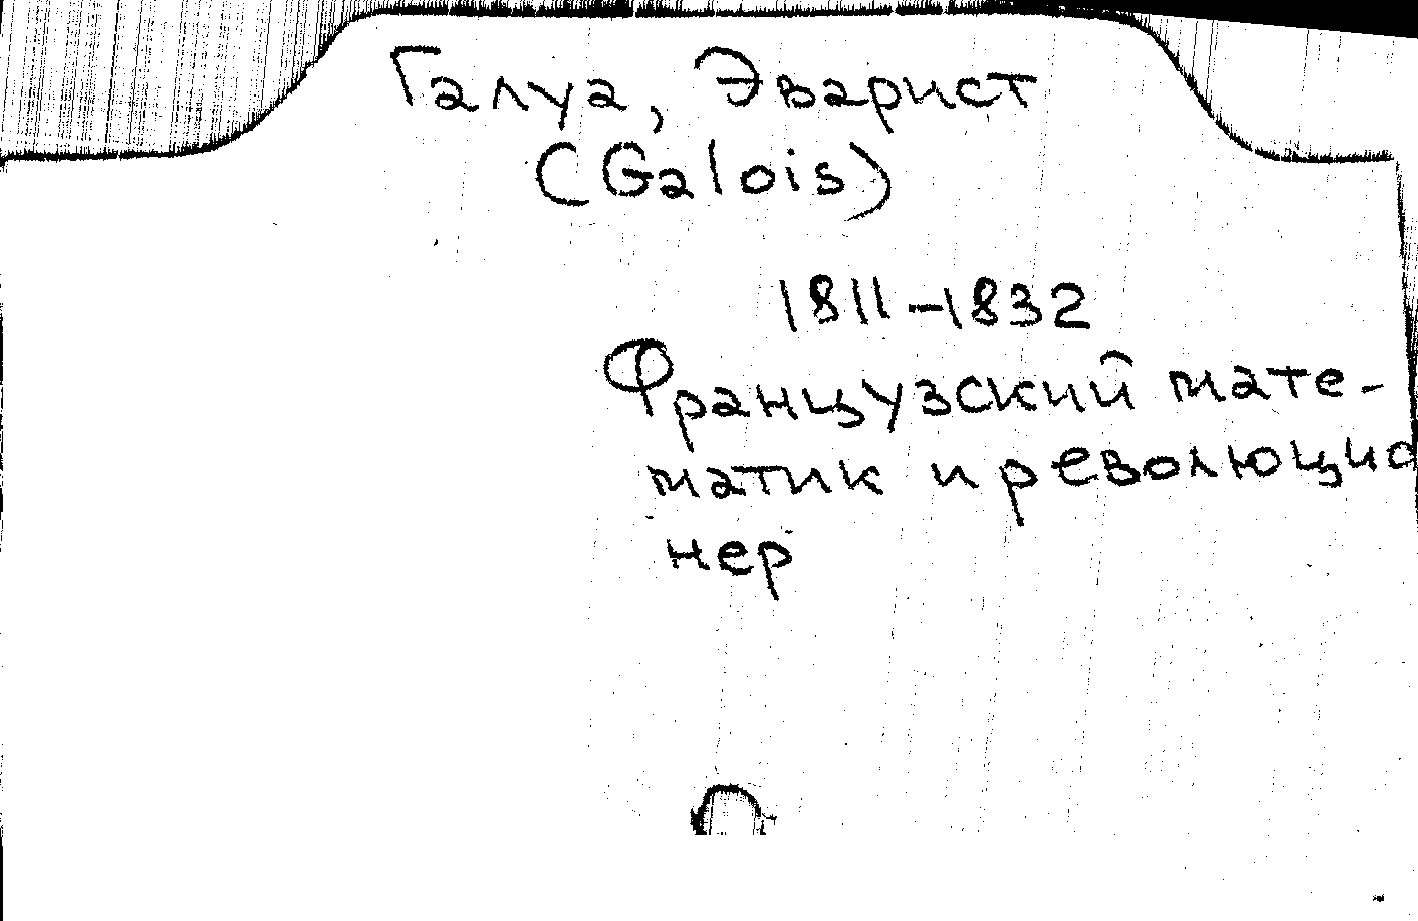 Галуа, Эварист
(Galois)
1811-1832
Французский мате-
матик и революцио
нер